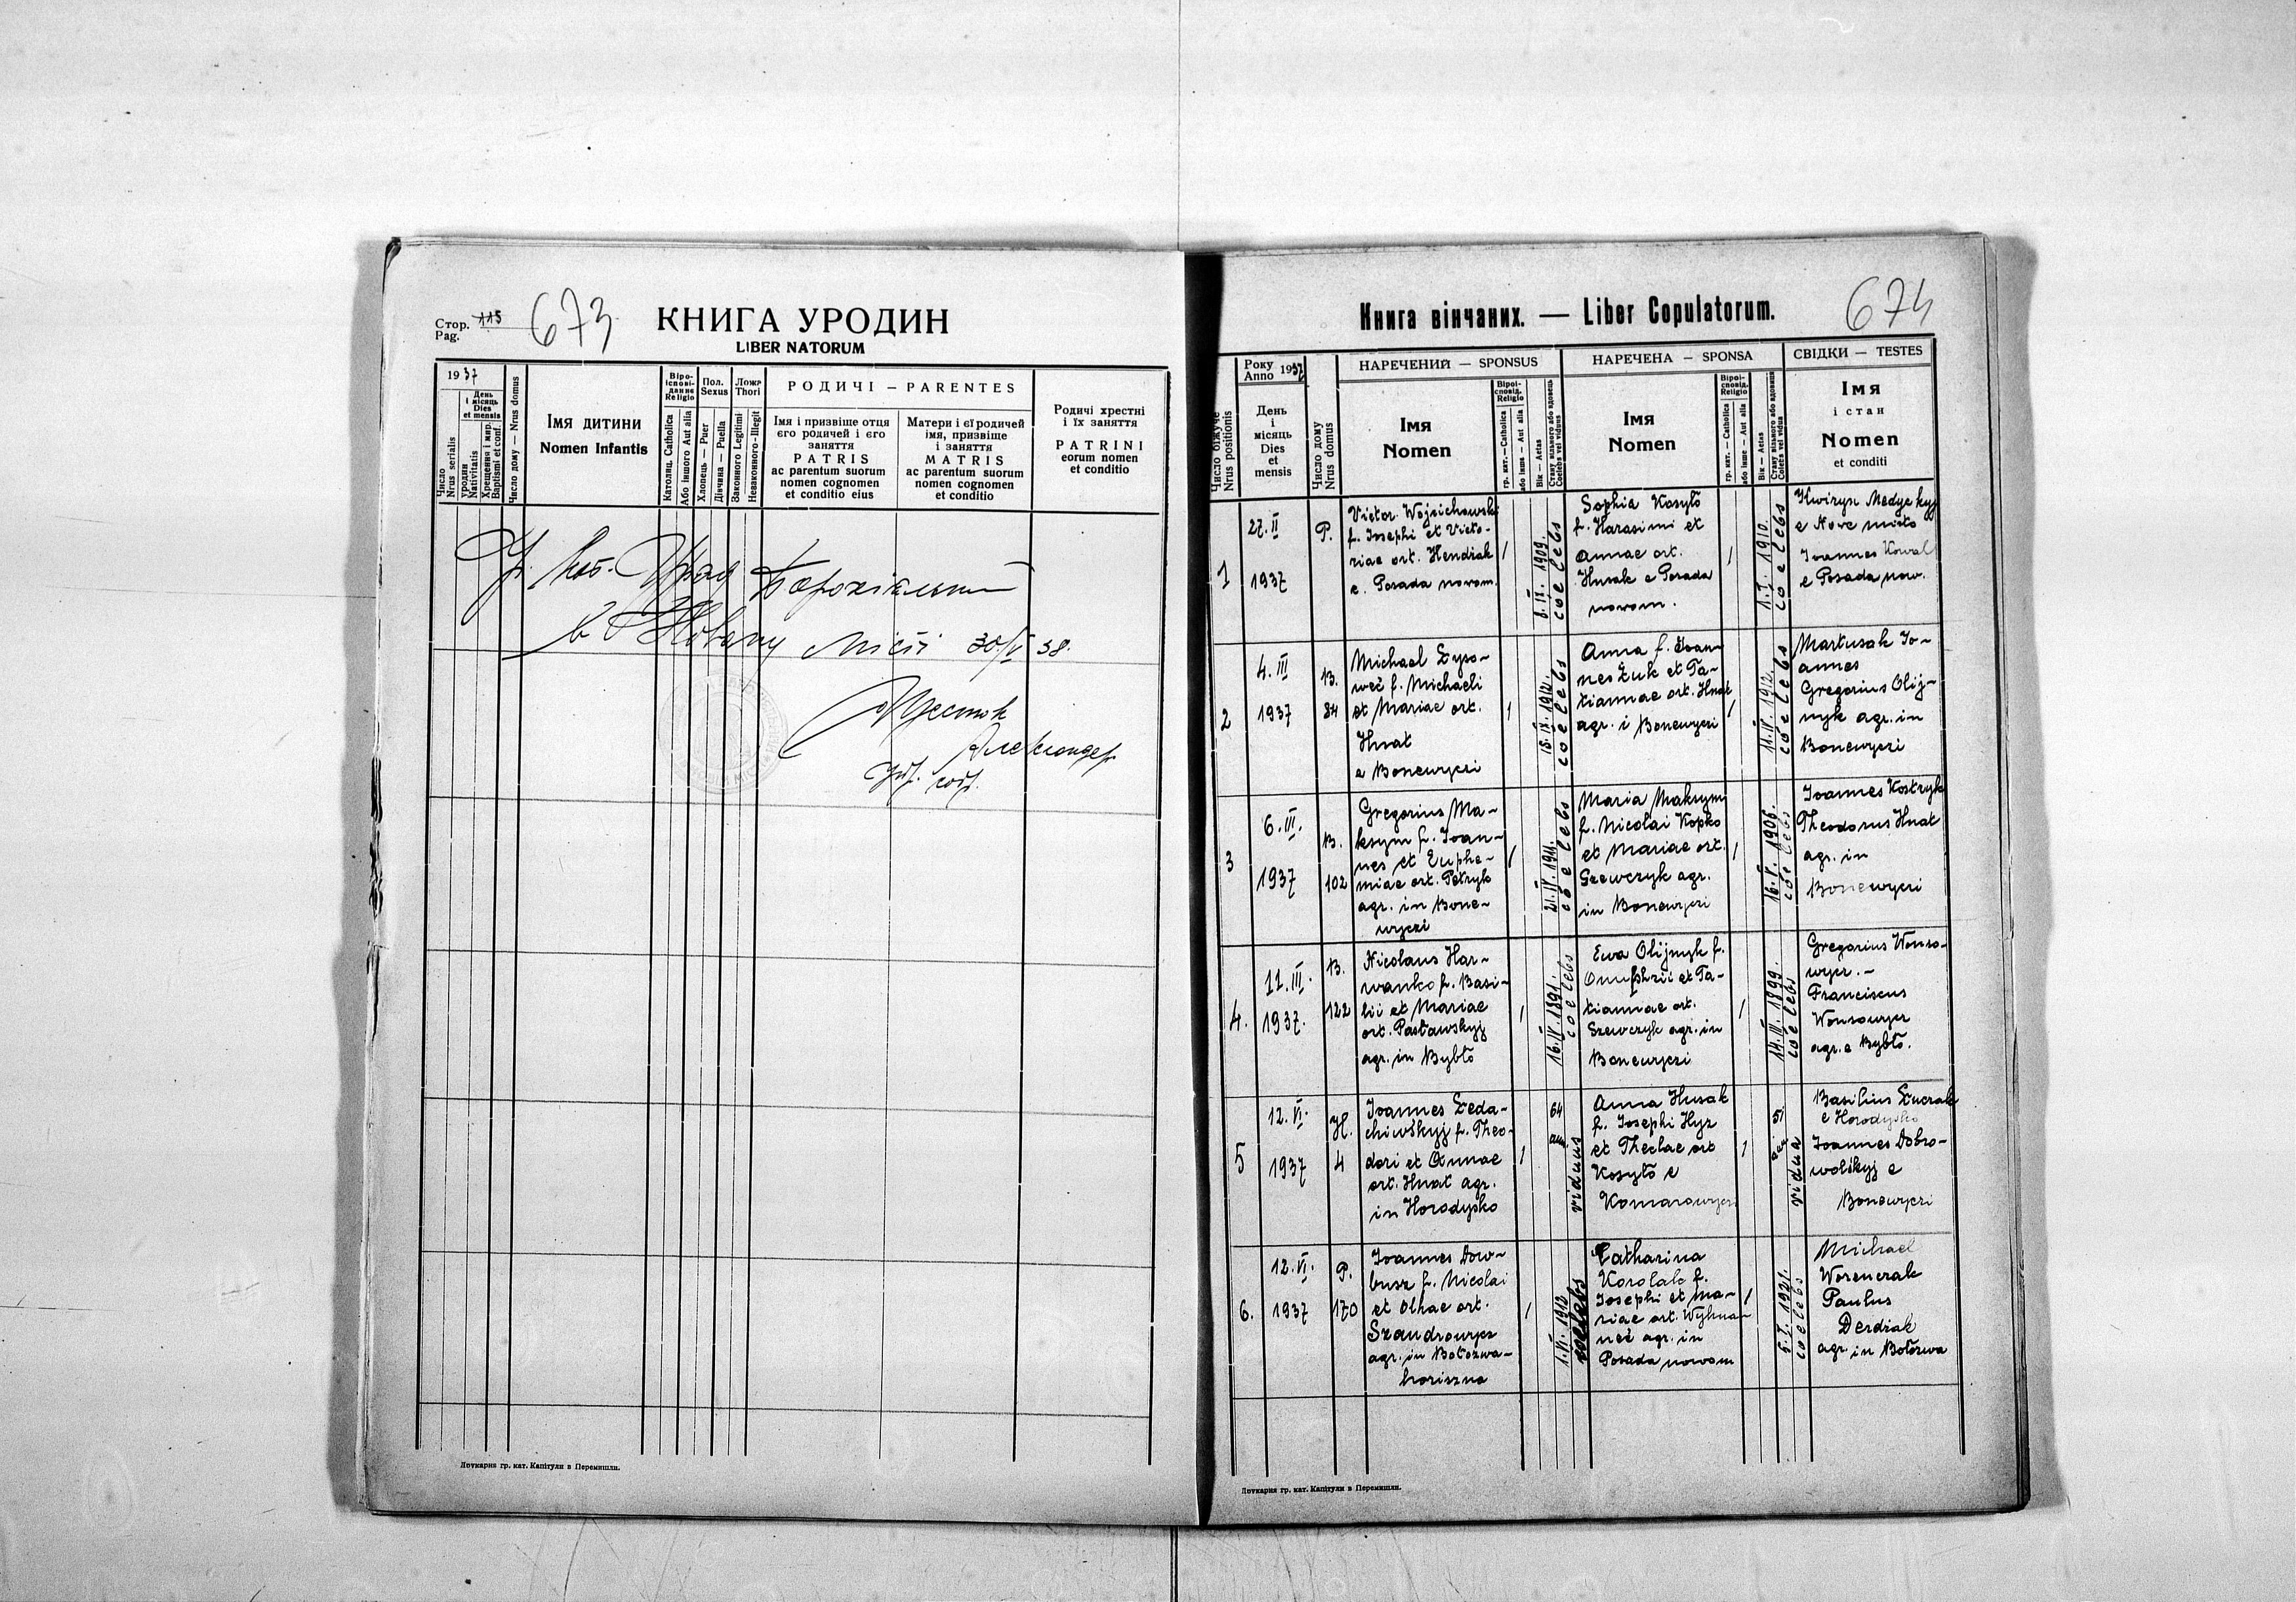 Стор. 115
Pag.
673
КНИГА УРОДИН
LIBER NATORUM
1937
Число
Nrus serialis
День
і місяць
Dies
et mensis
уродин
Nativitatis
Хрещення і мир.
Baptismi et conf.
Число дому — Nrus domus
Імя дитини
Nomen Infantis
Віро-
ісповід-
дання
Religio
Католиц. Catholica
Або іншого Aut alia
Пол.
Sexus
Хлопець — Puer
Дівчина — Puella
Ложе
Thori
Законного Legitimi
Незаконного-Illegit
РОДИЧІ — PARENTES
Імя і призвіще отця
єго родичей і єго
заняття
PATRIS
ac parentum suorum
nomen cognomen
et conditio eius
Матери і єї родичей
імя, призвіще
і заняття
MATRIS
ac parentum suorum
nomen cognomen
et conditio
Родичі хрестні
і їх заняття
PATRINI
eorum nomen
et conditio
Гр. кат. Уряд Парохіяльний
в Новому Місті 30/V 38.
Александер
Друкарня гр. кат. Капітули в Перемишли.
Книга вінчаних. — Liber Copulatorum.
674
Число біжуче
Nrus positionis
Року
Anno 1937
День
і
місяць
Dies
et
mensis
Число дому
Nrus domus
НАРЕЧЕНИЙ — SPONSUS
Імя
Nomen
Віроі-
сповід.
Religio
гр. кат. — Catholica
або інше — Aut alia
Вік — Aetas
Стану вільного або вдовець
Coelebs vel viduus
НАРЕЧЕНА — SPONSA
Імя
Nomen
Віроі-
сповід.
Religio
гр. кат. — Catholica
або інше — Aut alia
Вік — Aetas
Стану вільного або вдовиця
Colebs vel vidua
СВІДКИ — TESTES
Імя
і стан
Nomen
et conditi
1
27. II
1937
P.
Victor Wojcichowski
f. Josephi et Victo-
riae ort. Hendiak
e. Posada novom.
1
8. IX. 1909.
coelebs
Sophia Kosyło
f. Harasimi et
Annae ort.
Husak e Posada
novom.
1
1. I. 1910.
coelebs
Kwiryn Medyckyj
e Nove misto
Ioannes Kowal
e Posada now.
2
4. III
1937
B.
84
Michael Łyso-
weć f. Michaeli
et Mariae ort.
Hnat
e Bonewyczi
1
18. IX. 1912.
coelebs
Anna f. Ioan-
nes Żuk et Ta-
tiannae ort. Hnat
agr. i Bonewyczi
1
11. IV. 1912.
coelebs
Martusak Io-
annes
Gregorius Olij-
nyk agr. in
Bonewyczi
3
6. III.
1937
B.
102
Gregorius Ma-
ksym f. Ioan-
nes et Euphe-
miae ort. Petryk
agr. in Bone-
wyczi
1
21. IV. 1911.
coelebs
Maria Maksym
f. Nicolai Kopko
et Mariae ort.
Szewczyk agr.
in Bonewyczi
1
16. V. 1906.
coelebs
Ioannes Kostryk
Theodorus Hnat
agr. in
Bonewyczi
4.
11. III.
1937.
B.
122
Nicolaus Har-
wanko f. Basi-
lii et Mariae
ort. Pasławskyj
agr. in Bybło
1
16. IV. 1891.
coelebs
Ewa Olijnyk f.
Onufshrii et Ta-
tiannae ort.
Szewczyk agr. in
Bonewyczi
1
14. III. 1899.
coelebs
Gregorius Wonso-
wycz. -
Franciscus
Wonsowycz
agr. e Bybło.
5
12. VI.
1937
H.
4
Ioannes Łeda-
chiwśkyj f. Theo-
dori et Annae
ort. Hnat agr.
in Horodyśko
1
64
ann.
viduus
Anna Husak
f. Iosephi Hyz
et Theclae ort
Kosyło e
Komarowyczi
1
51
vidua
Basilius Łuczak
e Horodysko
Ioannes Dobro-
wolśkyj e
Bonewyczi
6.
12. VI.
1937
P.
170
Ioannes Dow-
busz f. Nicolai
et Olhae ort.
Szandrowycz
agr. in Bołozwa-
horiszna
1
1. VI. 1912
coelebs
Catharina
Korolak f.
Iosephi et Ma-
riae ort. Wyhna-
neć agr. in
Posada nowom
1
5. I. 1921.
coelebs
Michael
Worenczak
Paulus
Derdiak
agr. in Bołozwa
Друкарня гр. кат. Капітули в Перемишли.